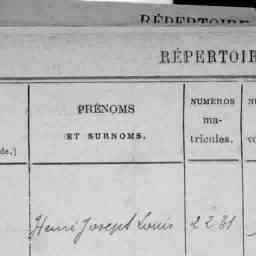 RÉPERTOIRE
RÉPERTOIR
PRÉNOMS
ET SURNOMS.
NUMÉROS
ma-
tricules.
Henri Joseph Louis 2231